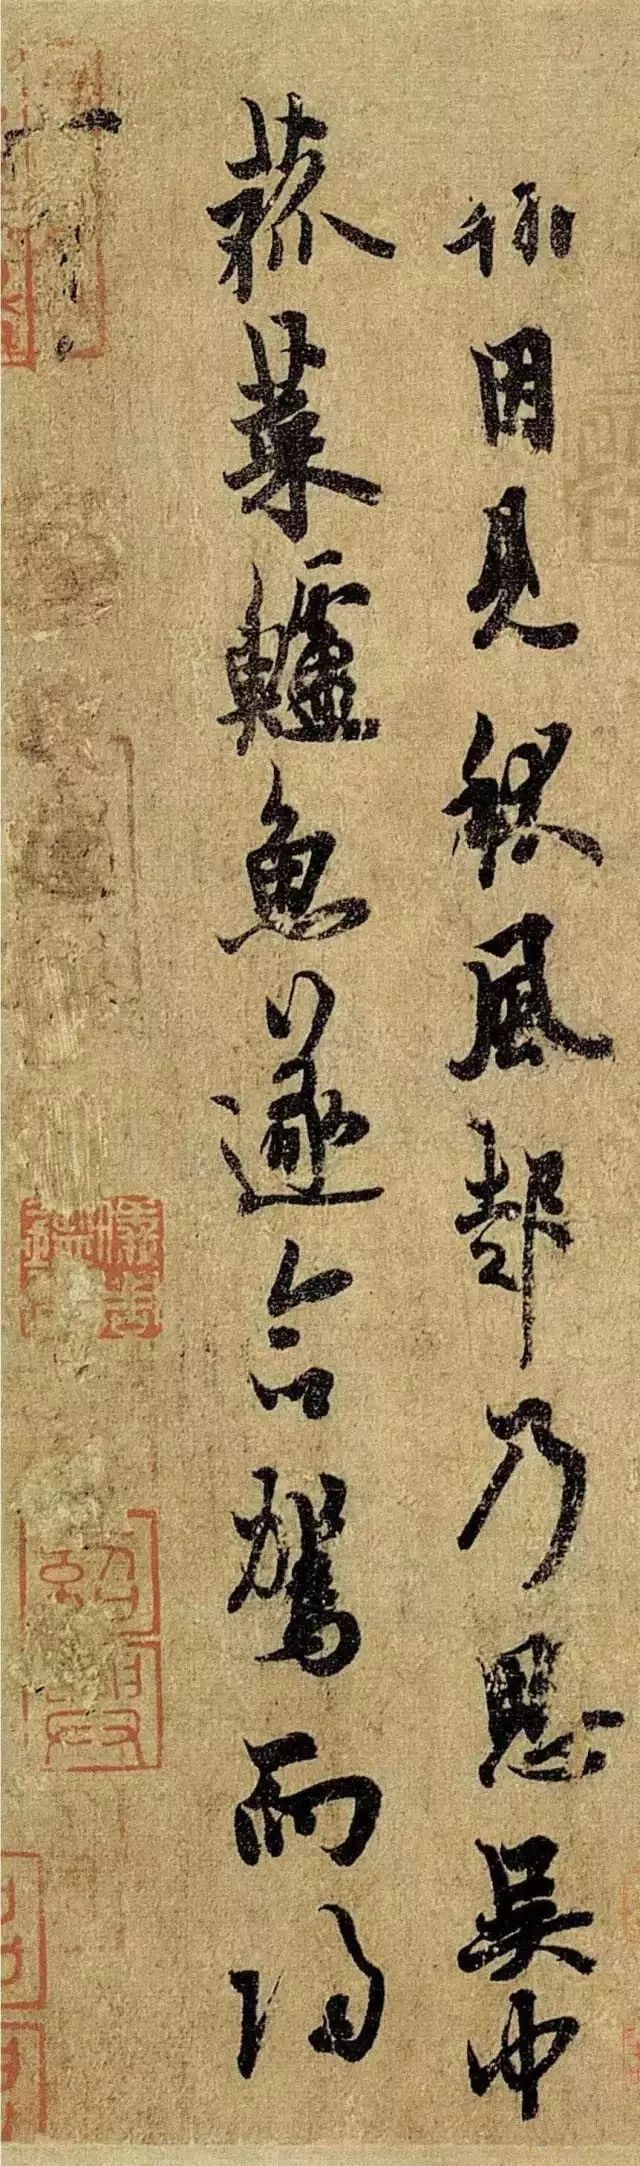 因見秋風起乃思吳中
菰菜鱸魚遂命駕而歸
紹興